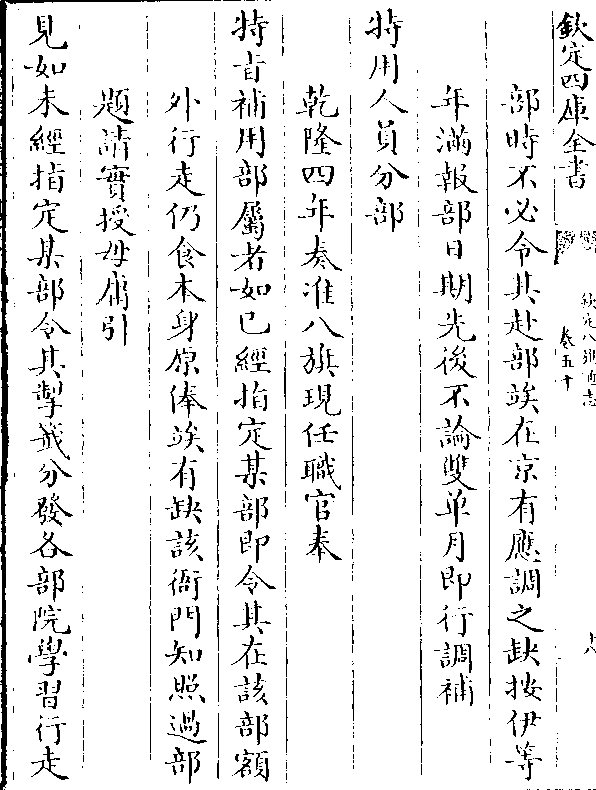 欽定四庫全書
欽定八旗通志
卷五十
十八
部時不必令其赴部俟在京有應調之缺按伊等
年滿報部日期先後不論雙單月即行調補
特用人員分部
乾隆四年奏准八旗現任職官奉
特旨補用部屬者如已經指定某部即令其在該部額
外行走仍食本身原俸俟有缺該衙門知照過部
題請實授毋庸引
見如未經指定某部令其掣籤分發各部院學習行走